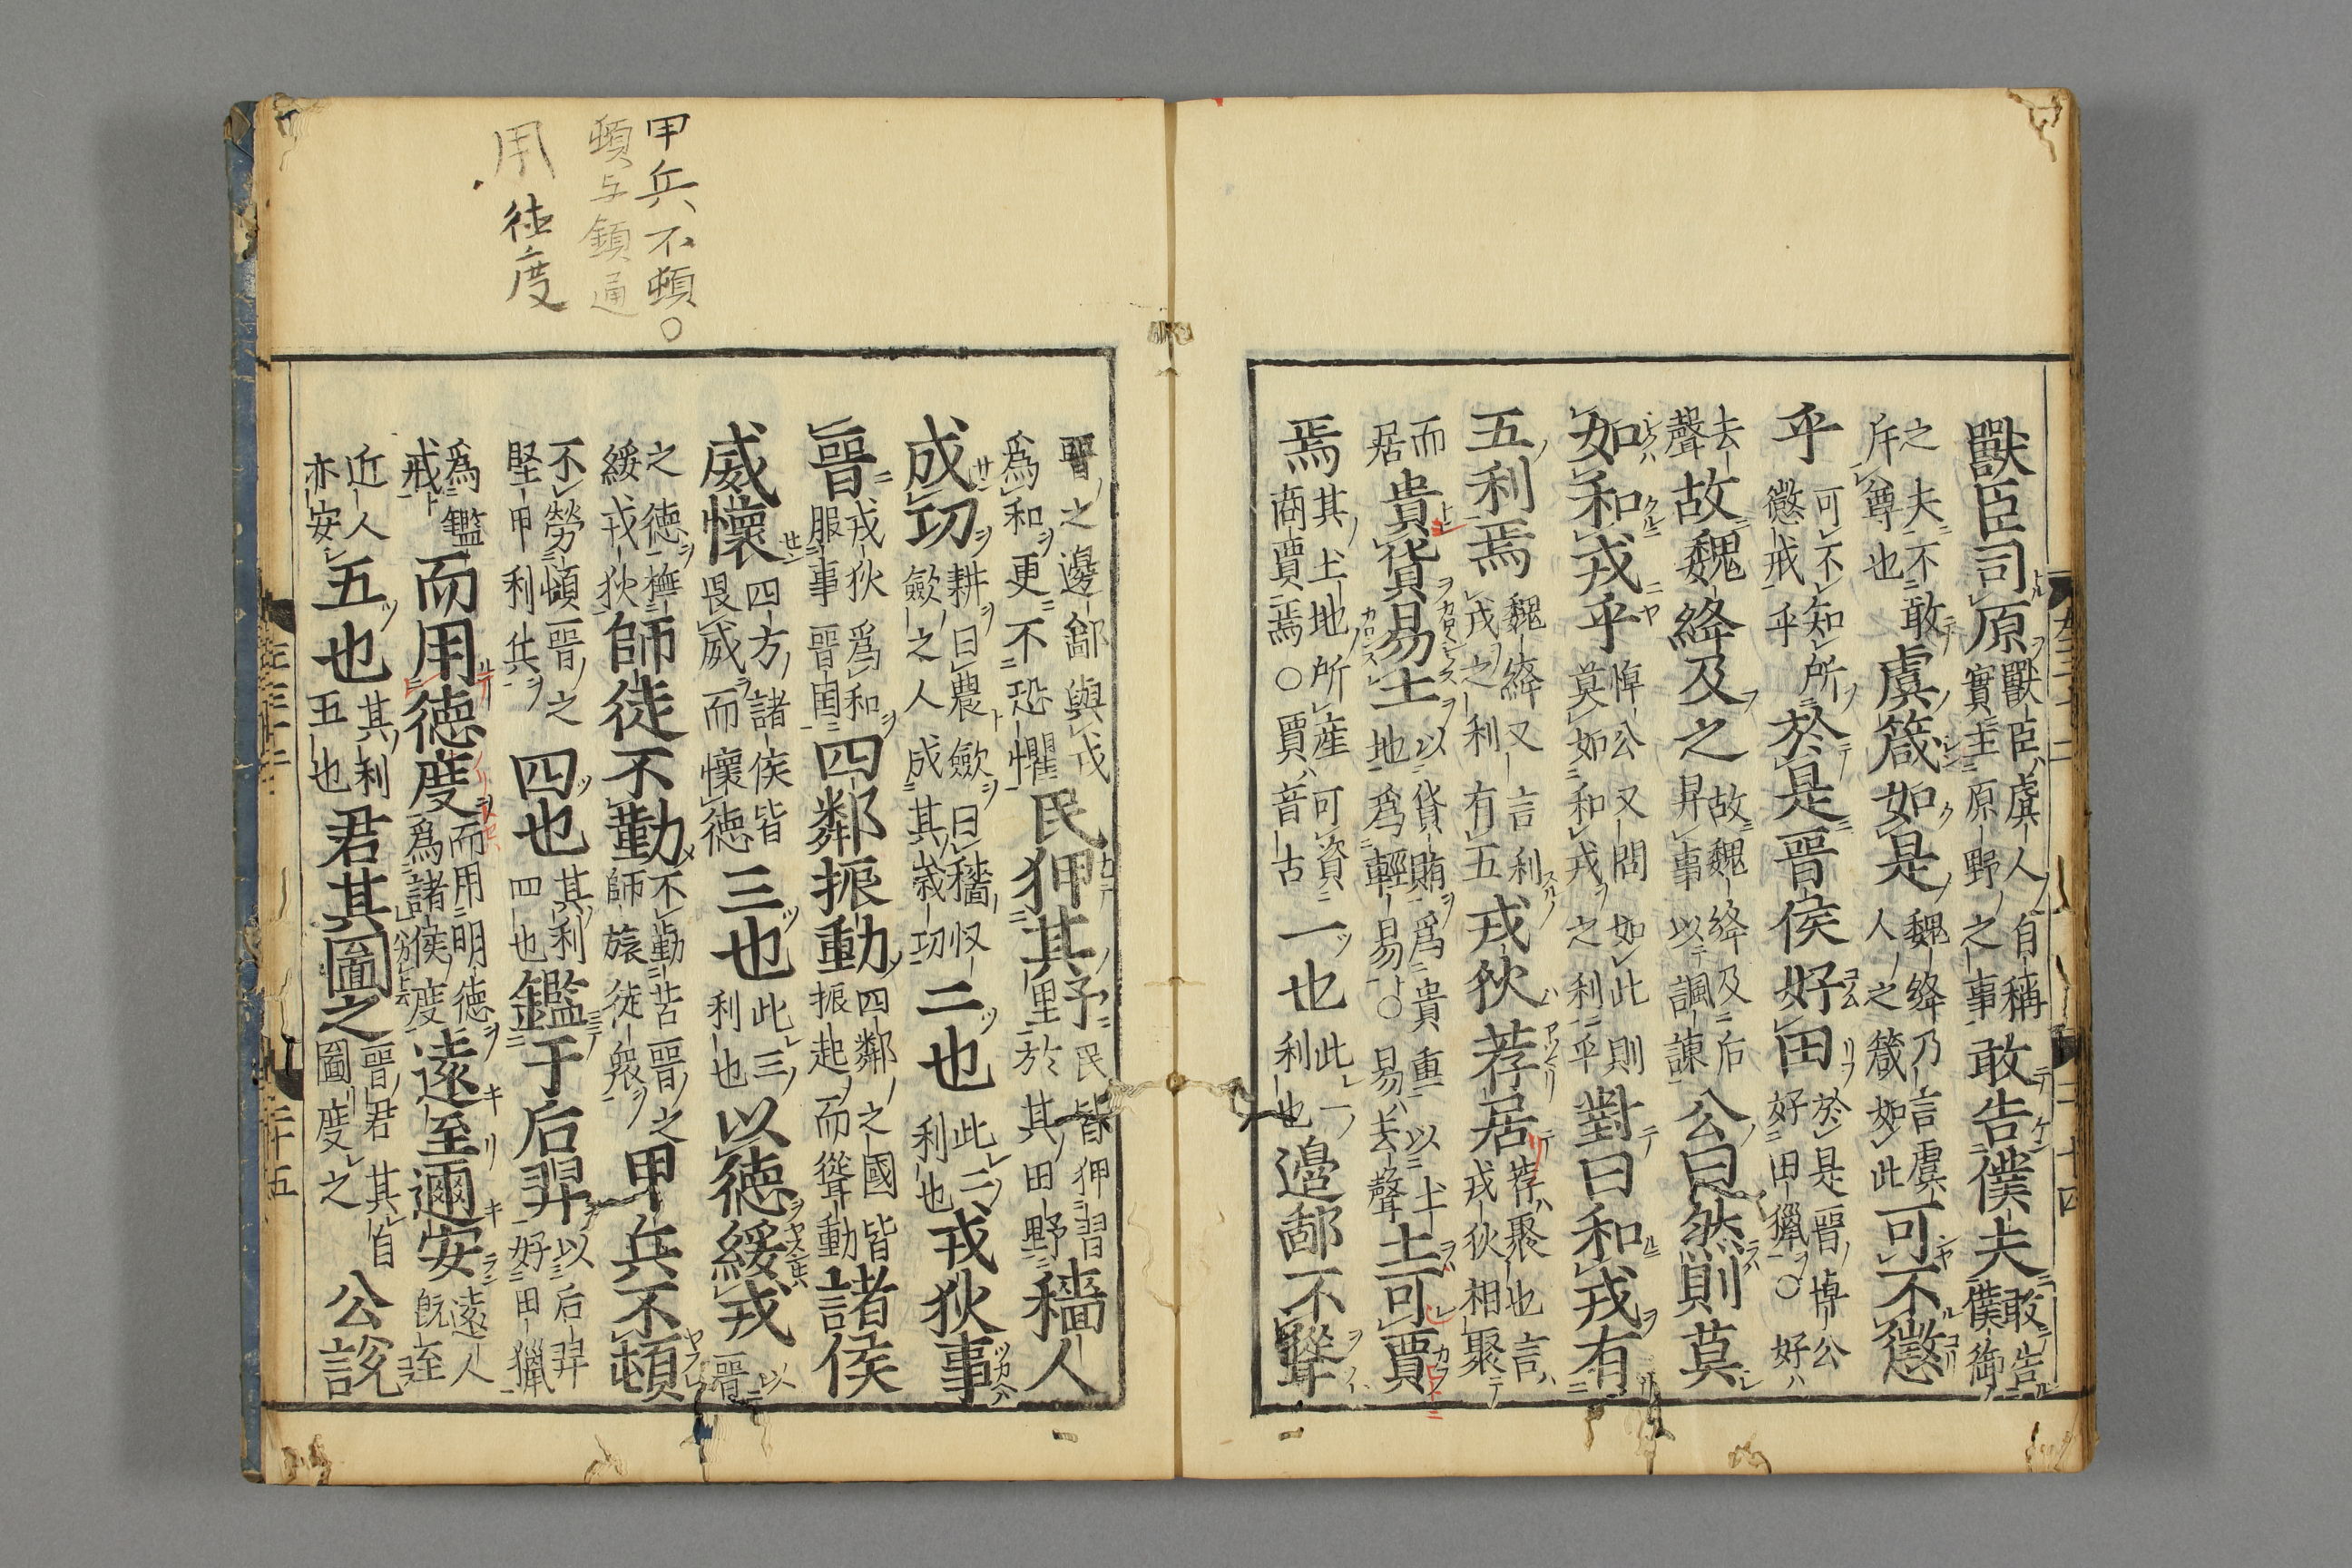 獸臣司原獸臣虞人自稱實主原野之事敢告僕夫敢告僕御
之夫不敢斥尊也虞箴如是魏絳乃言虞人之箴如此可不懲
乎可不知所懲戒乎於是晉侯好田於是晉悼公好田獵○好
去聲故魏絳及之故魏絳及后昇事以諷諫公曰然則莫
如和戎乎悼公又問如此則莫如和戎之利乎對曰和戎有
五利焉魏絳又言利戎之利有五戎狄荐居荐聚也言戎狄相聚
而居貴貨易土以貨賄爲貴重以土地爲輕易○易去聲土可賈
焉其土地所産可資商賈焉○賈音古一也此一利也邊鄙不聳
晉之邊鄙與戎爲和更不恐懼民狎其予民皆狎習里於其田野穡人
成功耕曰農歛曰穡收歛之人成其歲功二也此二利也戎狄事
晉戎狄爲和服事晉国四鄰振動四鄰之國皆振起而聳動諸侯
威懷四方諸侯皆畏威而懷徳三也此三利也以徳綏戎以晉
之徳撫綏戎狄師徒不勤不勤苦晉之師旅徒衆甲兵不頓
不勞頓晉之堅甲利兵四也其利四也鑑于后羿以后羿好田獵
爲鑑戒而用徳度而用明徳爲諸侯度遠至邇安遠人既至
近人亦安五也其利五也君其圖之晉君其自圖度之公説
甲兵不頓○
頓与鈍通
用徳度